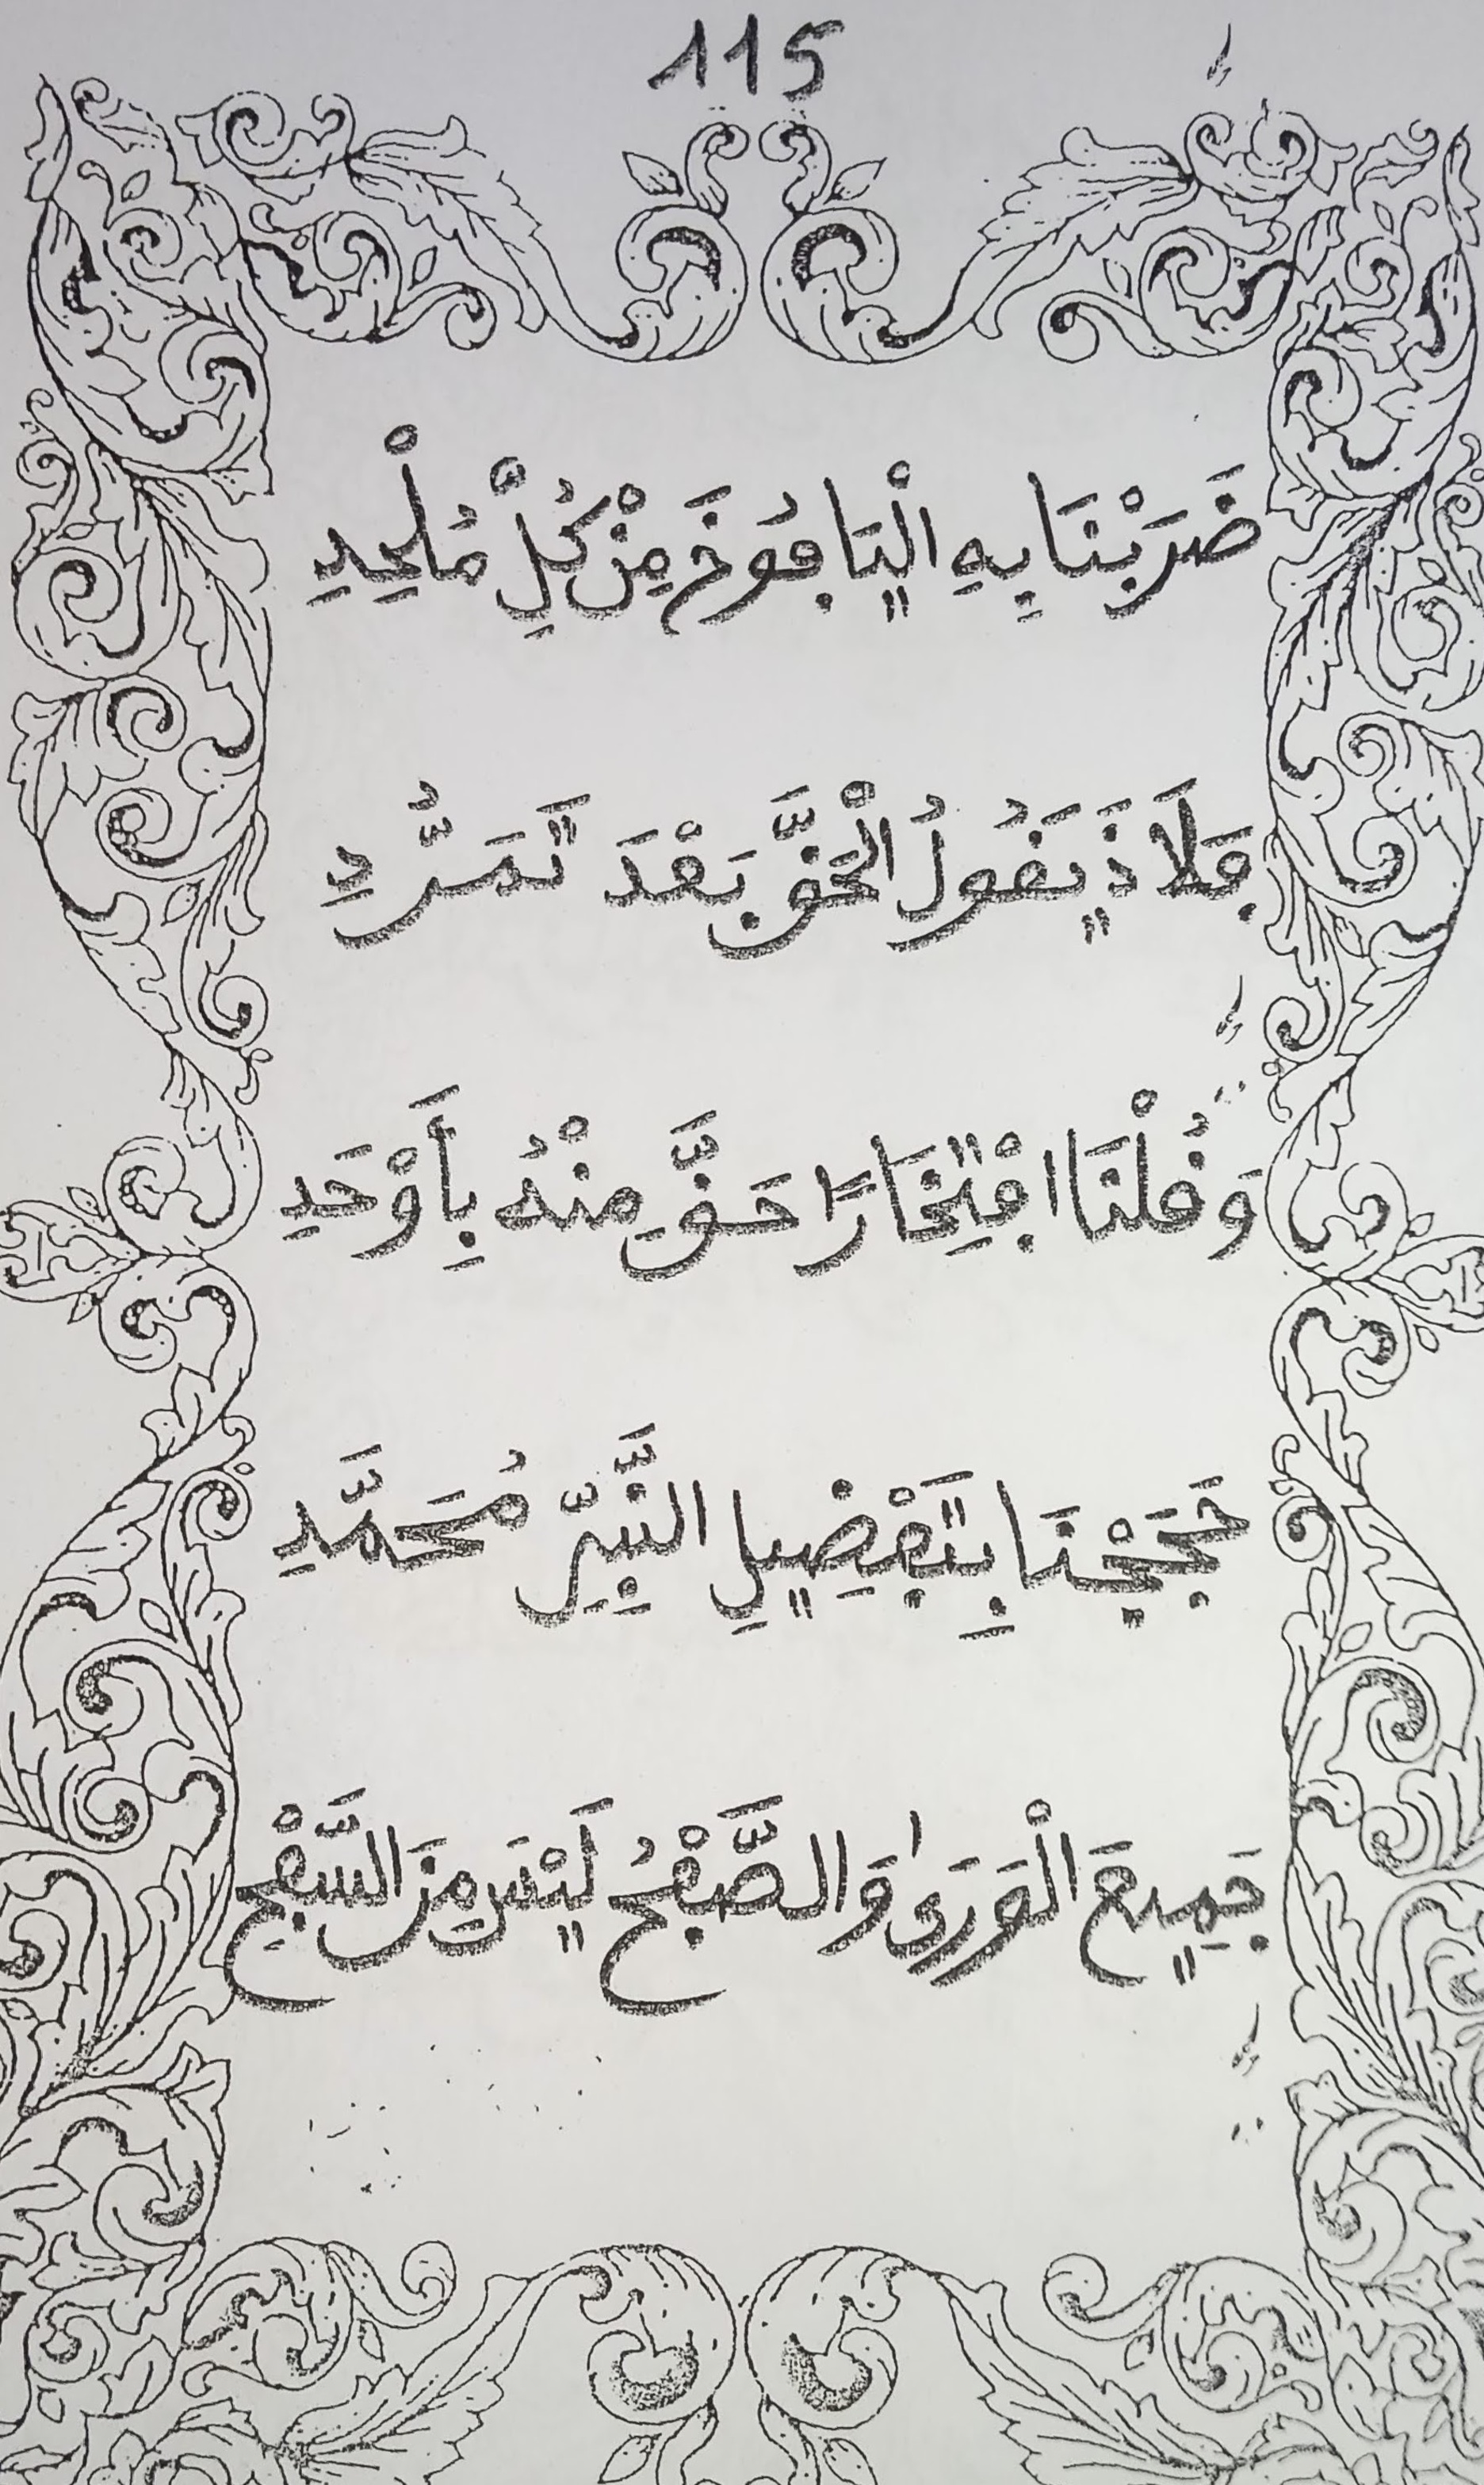 115
ضَرَبْنَا بِهِ الْيَافُوخَ مِنْ كُلِّ مُلْحِدِ
فَلَاذَ يَقُولُ الْحَقَّ بَعْدَ تَمَرُّدِ
وَقُلْنَا افْتِخَارًا حَقَّ مِنْهُ بِأَوْحَدِ
حَجَجْنَا بِتَفْضِيلِ النَّبِيِّ مُحَمَّدِ
جَمِيعَ الْوَرَىٰ وَالصَّفْحُ لَيْسَ مِنَ السَّفْحِ